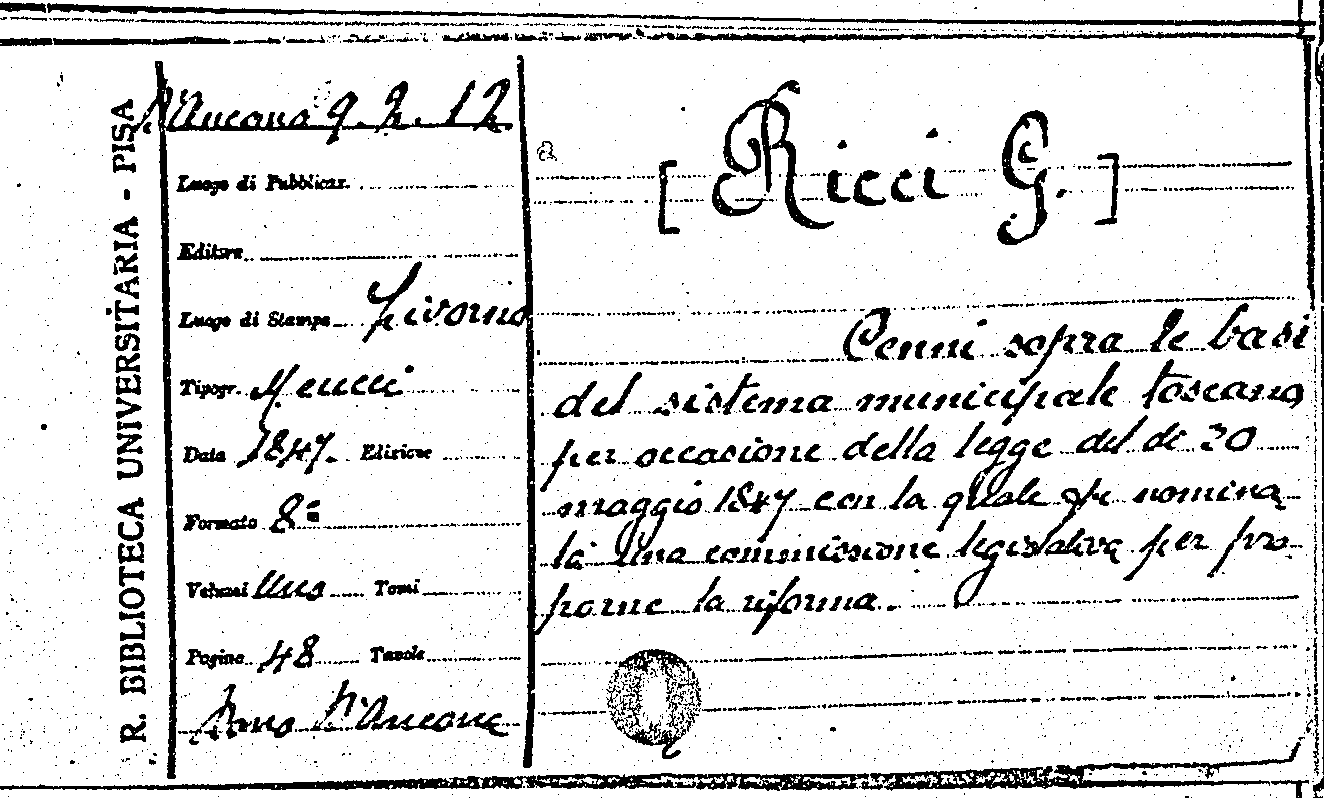 R. BIBLIOTECA UNIVERSITARIA - PISA
D'Ancona 9. 2. 12
Luogo di Pubblicaz.
Editore
Luogo di Stampa Livorno
Tipogr. Meucci
Data 1847. Edizione
Formato 8º
Volumi Uno Tomi
Pagine 48 Tavole
Dono D'Ancona
[Ricci G.]
Cenni sopra le basi
del sistema municipale toscano
per occasione della legge del dì 20
maggio 1847 con la quale fu nomina
ta una commissione legislativa per pro
porne la riforma.